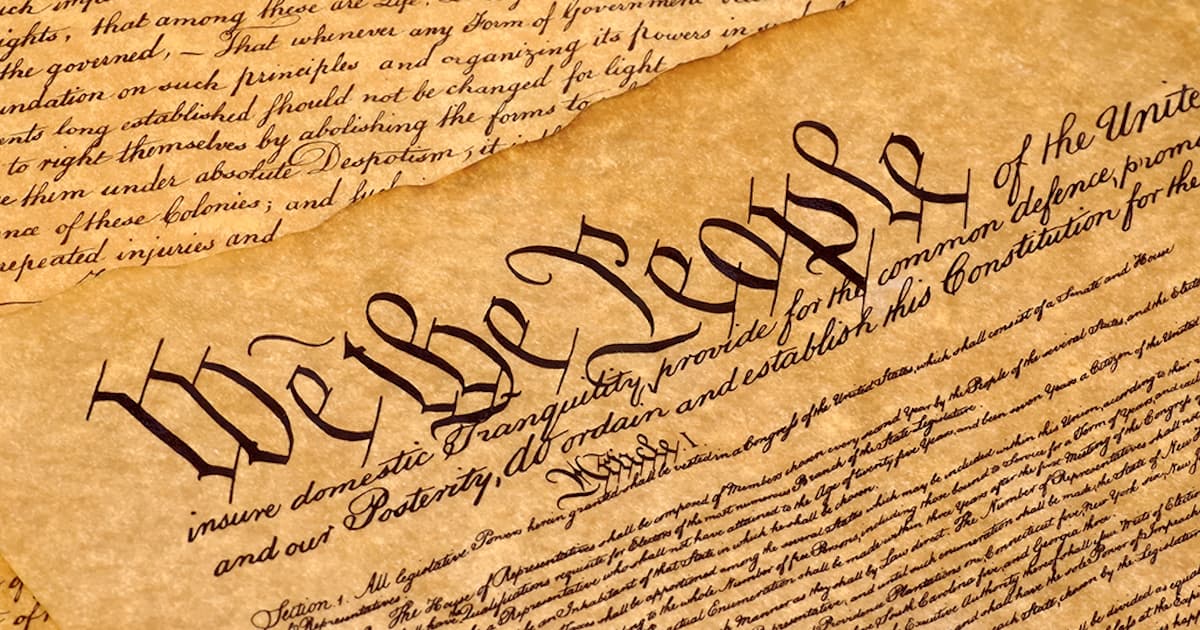 ights, that among these are Life,
the governed, — That whenever any Form of Government
undation on such principles and organizing its powers in
ents long established should not be changed for light
to right themselves by abolishing the forms to
e them under absolute Despotism, it is
nce of these Colonies; and such
repeated injuries and
We the People of the Unite
insure domestic Tranquility, provide for the common defence, promo
and our Posterity, do ordain and establish this Constitution for the
Article. I.
Section. 1. All legislative Powers herein granted shall be vested in a Congress of the United States, which shall consist of a Senate and House
Representatives.
The House of Representatives shall be composed of Members chosen every second Year by the People of the several States, and the Elect
shall have Qualifications requisite for Electors of the most numerous Branch of the State Legislature.
Representative who shall not have attained to the Age of twenty five Years, and been seven Years a Citizen of the United
an Inhabitant of that State in which he shall be chosen.
shall be apportioned among the several States which may be included within this Union, according to their
to the whole Number of free Persons, including those bound to Service for a Term of Years, and
actual Enumeration shall be made within three Years after the first Meeting of the Congress
Manner as they shall by Law direct. The Number of Representatives shall not
Representative; and until such enumeration shall be made, the State of New
Providence Plantations one, Connecticut five, New York six, New
South Carolina five, and Georgia three.
Executive Authority thereof shall issue Writs of Elect
and shall have the sole Power of Impeach
each State, chosen by the Legislature
be divided as equal